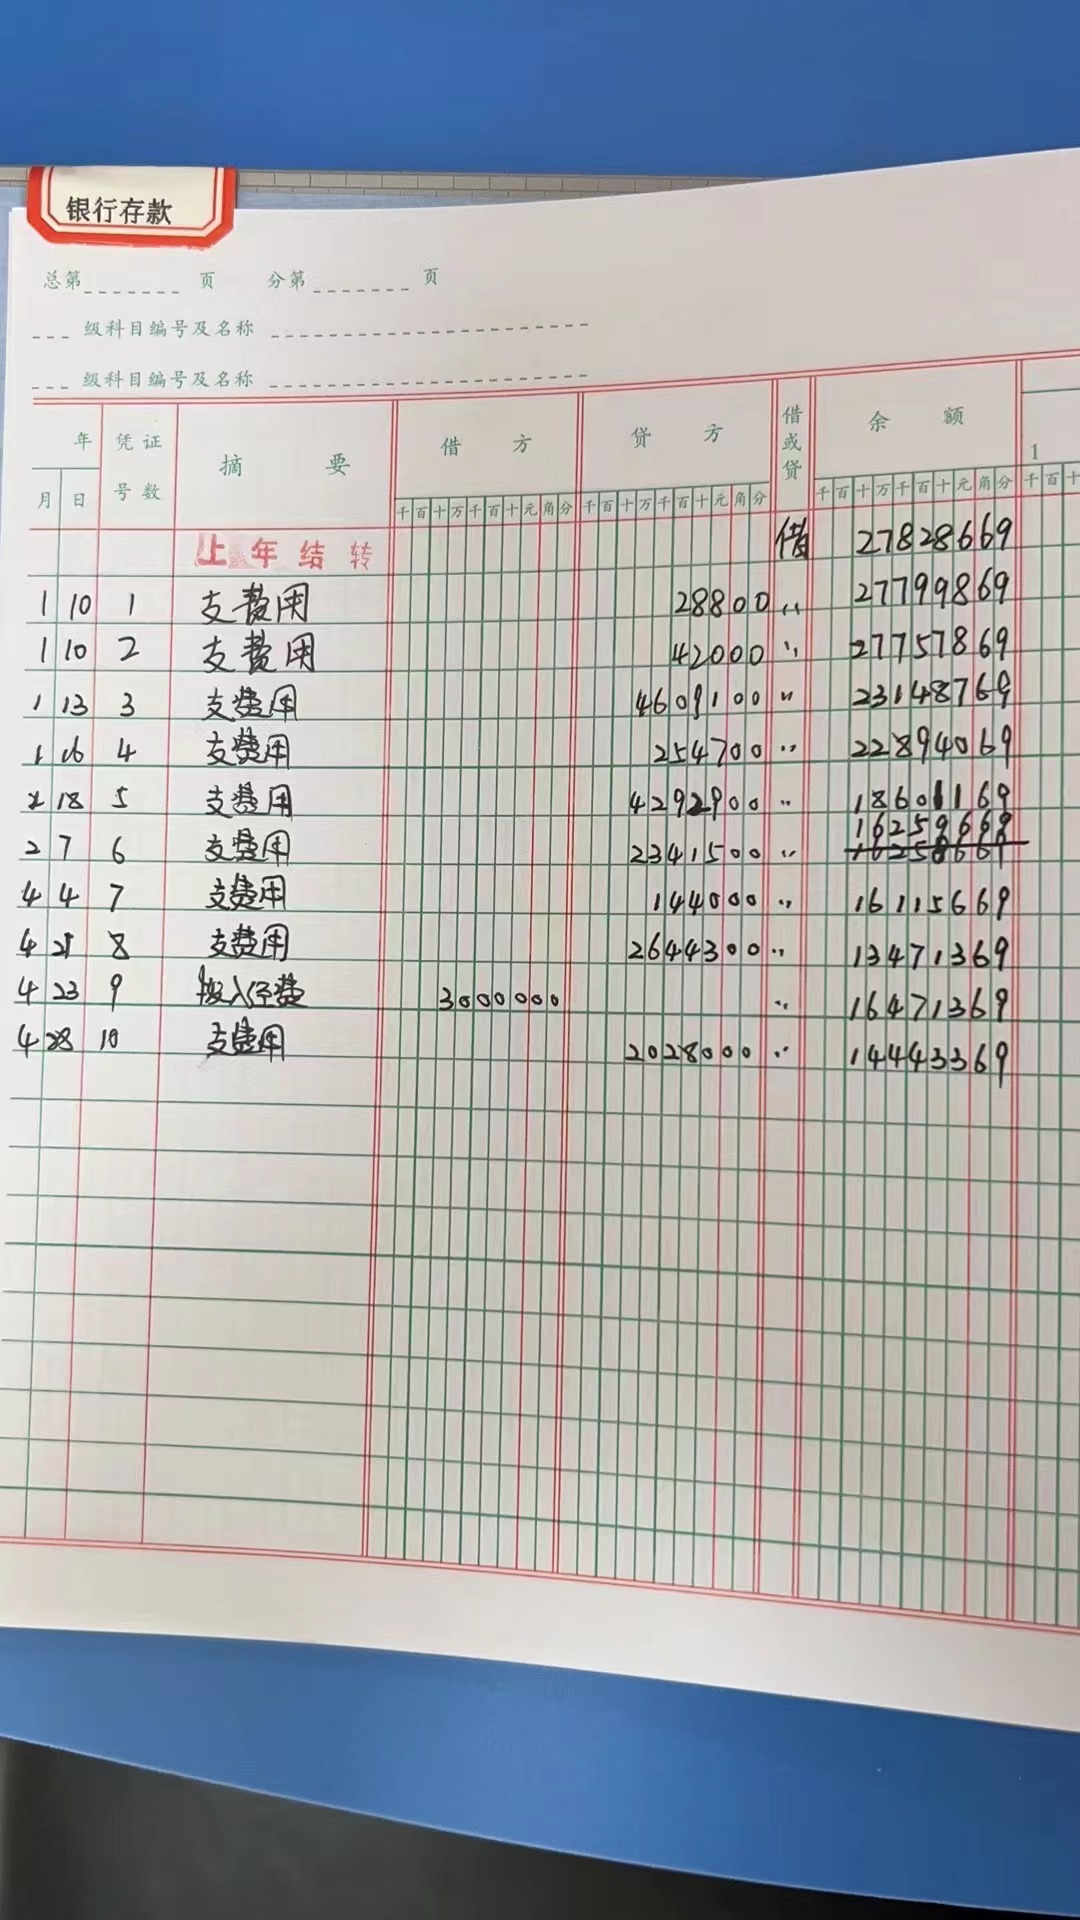 银行存款
总第 页 分第 页
级科目编号及名称
级科目编号及名称
年 凭证 摘要 借方 贷方 借或贷 余额
月 日 号数 千百十万千百十元角分 千百十万千百十元角分 千百十万千百十元角分 1 千百十
上年结转 借 27828669
1 10 1 支费用 28800 〃 27799869
1 10 2 支费用 42000 〃 27757869
1 13 3 支费用 4609100 〃 23148769
1 16 4 支费用 254700 〃 22894069
18 5 支费用 4292900 〃 18601169
16259669
2 7 6 支费用 2341500 〃
4 4 7 支费用 144000 〃 16115669
4 21 8 支费用 2644300 〃 13471369
4 23 9 拨入经费 3000000 〃 16471369
4 28 10 支费用 2028000 〃 14443369